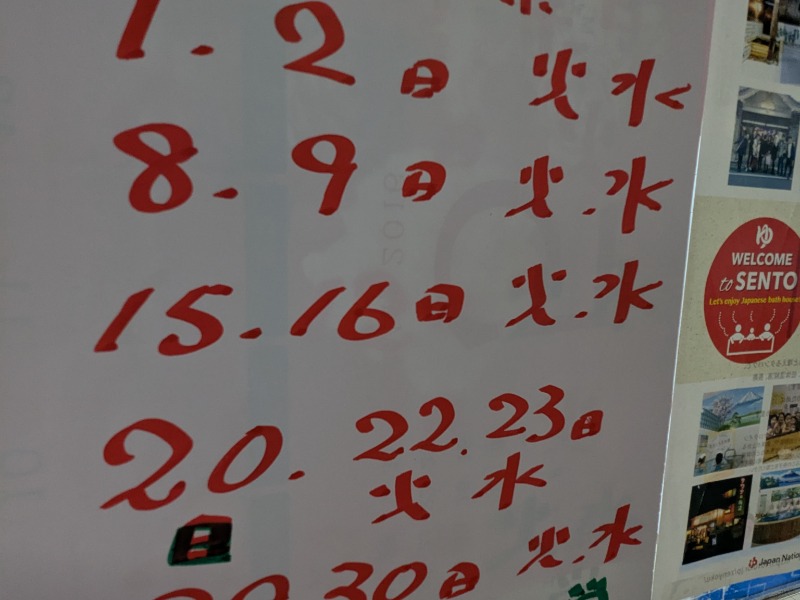 1.2日 火水
8.9日 火.水
15.16日 火.水
20. 22.23日
日 火 水
30日 火.水
WELCOME
to SENTO
Let's enjoy Japanese bath
Japan